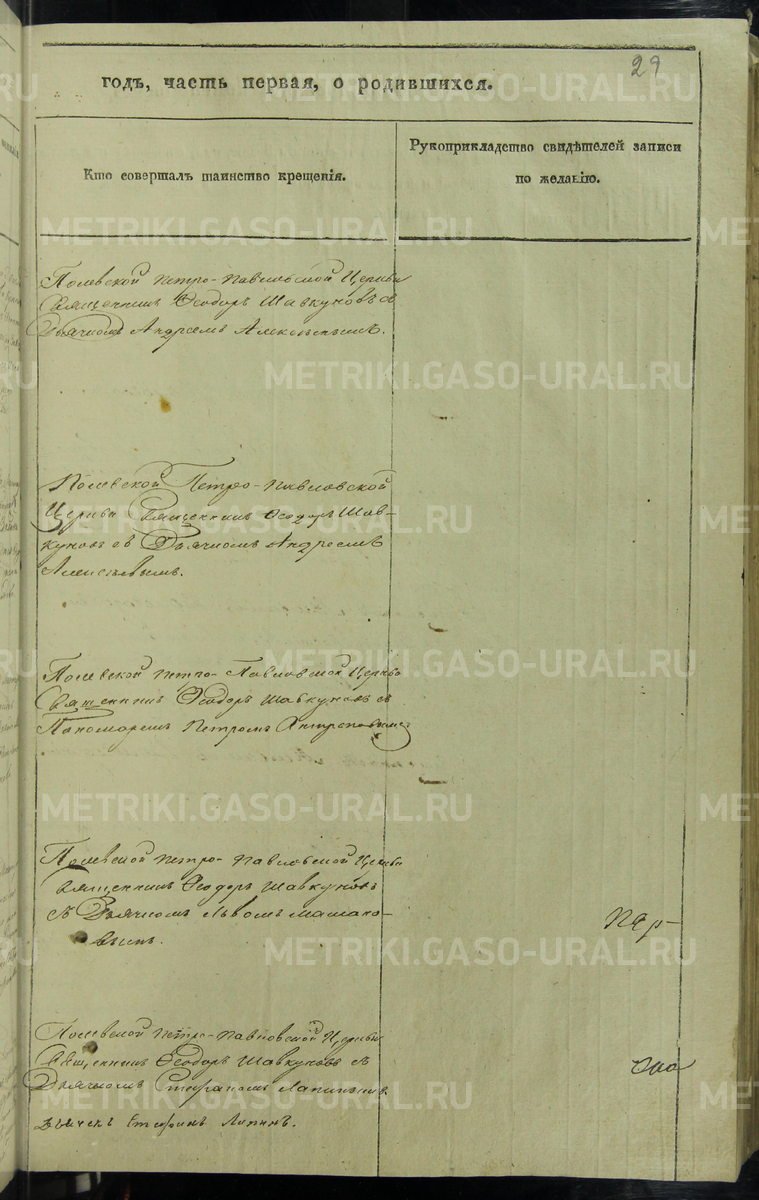 29
годъ, часть первая, о родившихся.
Кто совершалъ таинство крещенія.
Рукоприкладство свидѣтелей записи
по желанію.
Полевской Петро-Павловской Церкви
Священникъ Ѳеодоръ Шавкуновъ съ
Дьячкомъ Андреемъ Алексѣевымъ.
Полевской Петро-Павловской
Церкви Священникъ Ѳеодоръ Шав-
куновъ съ Дьячкомъ Андреемъ
Алексѣевымъ.
Полевской Петро-Павловской Церкви
Священникъ Ѳеодоръ Шавкуновъ съ
Пономаремъ Петромъ
Полевской Петро-Павловской Церкви
Священникъ Ѳеодоръ Шавкуновъ
съ Дьячкомъ Львомъ
Полевской Петро-Павловской Церкви
Священникъ Ѳеодоръ Шавкуновъ съ
Дьячкомъ Стефаномъ
METRIKI.GASO-URAL.RU